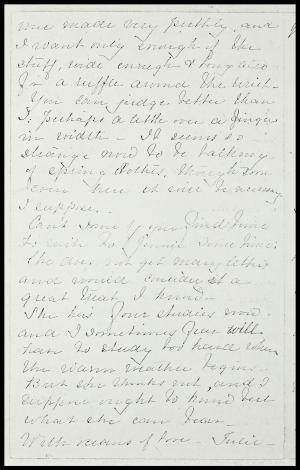 were made very prettily, and
I want only enough of the
stuff, wide enough & long also
for a ruffle around the
You can judge better than
I: perhaps a little over a finger
in width — It seems so
strange now to be talking
of spring clothes, though soon
here it will be necessary
I suppose.
Can't some of you find time
to write to Jennie some time.
She does not get many letters
and would consider it a
great treat, I know.
She has four studies now
and I sometimes fear will
have to study too hard when
the warm weather begins.
But she thinks not, and I
suppose ought to know best
what she can bear.
With oceans of love — Susie —